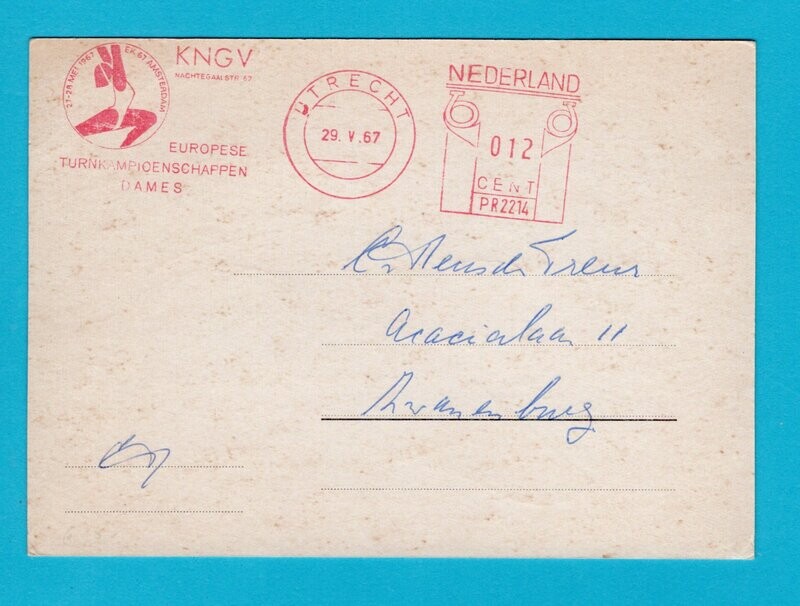 27-28 MEI 1967 EK 67 AMSTERDAM
KNGV
NACHTEGAALSTR 67
EUROPESE
TURNKAMPIOENSCHAPPEN
DAMES
UTRECHT
29. V .67
NEDERLAND
012
CENT
PR2214
Treur
Acacialaan 11
Zwanenburg